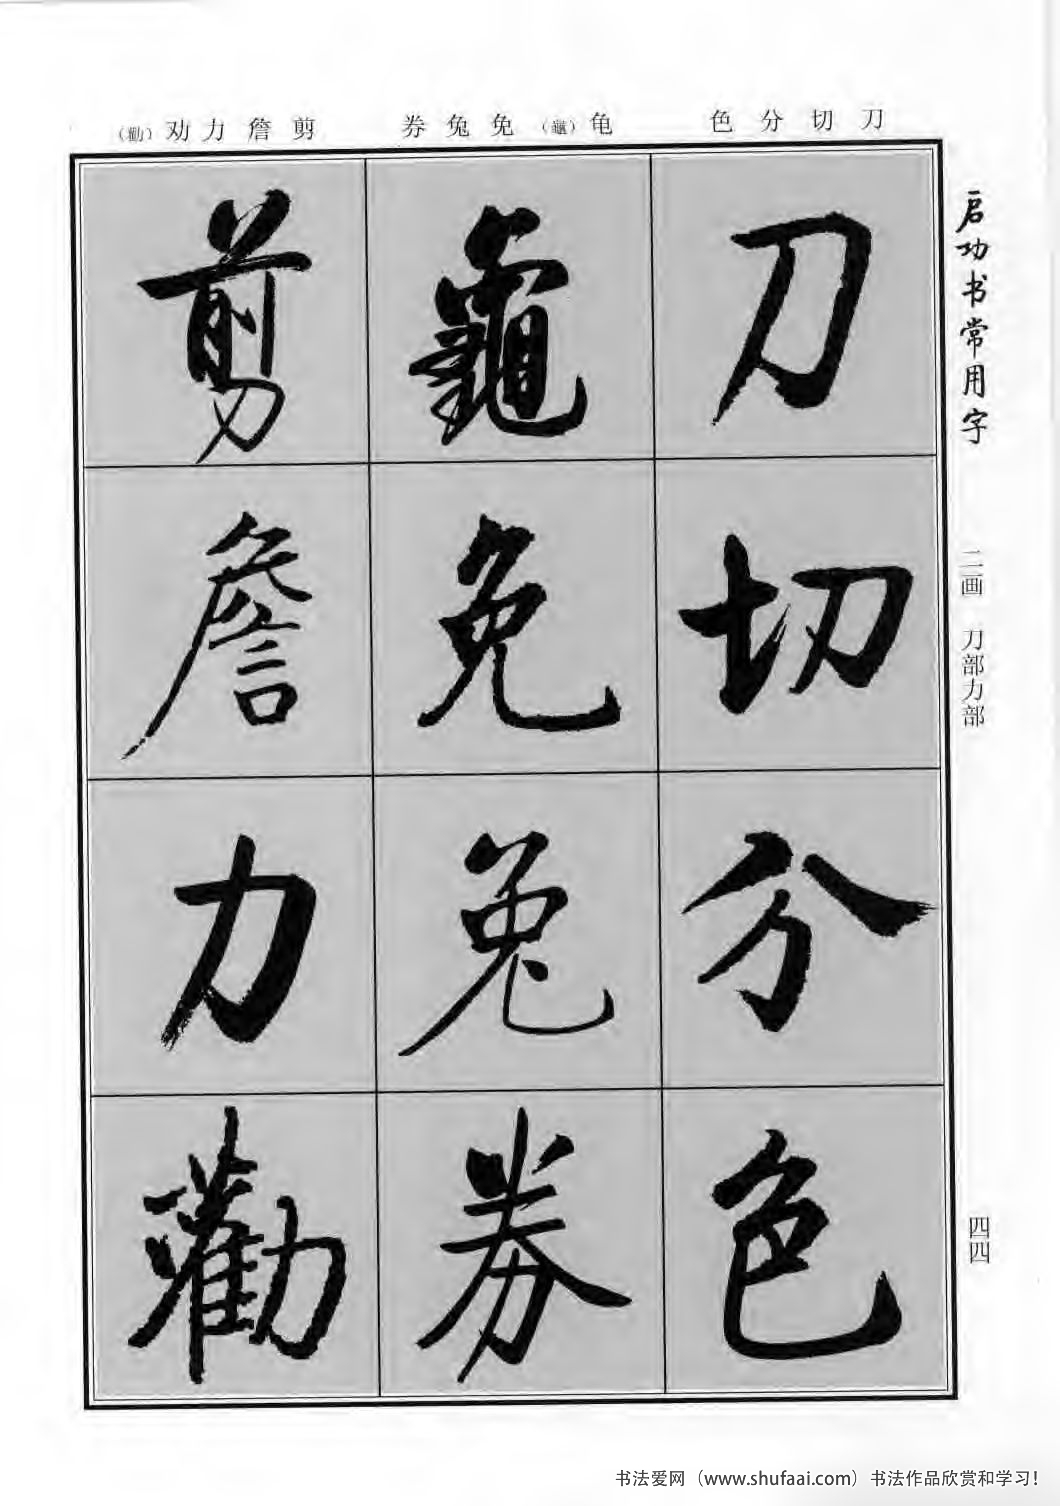 刀切分色
龟(龜)免兔券
剪詹力劝(勸)
启功书常用字
二画 刀部力部
四四
刀
切
分
色
龜
免
兔
券
剪
詹
力
勸
书法爱网（www.shufaai.com）书法作品欣赏和学习！